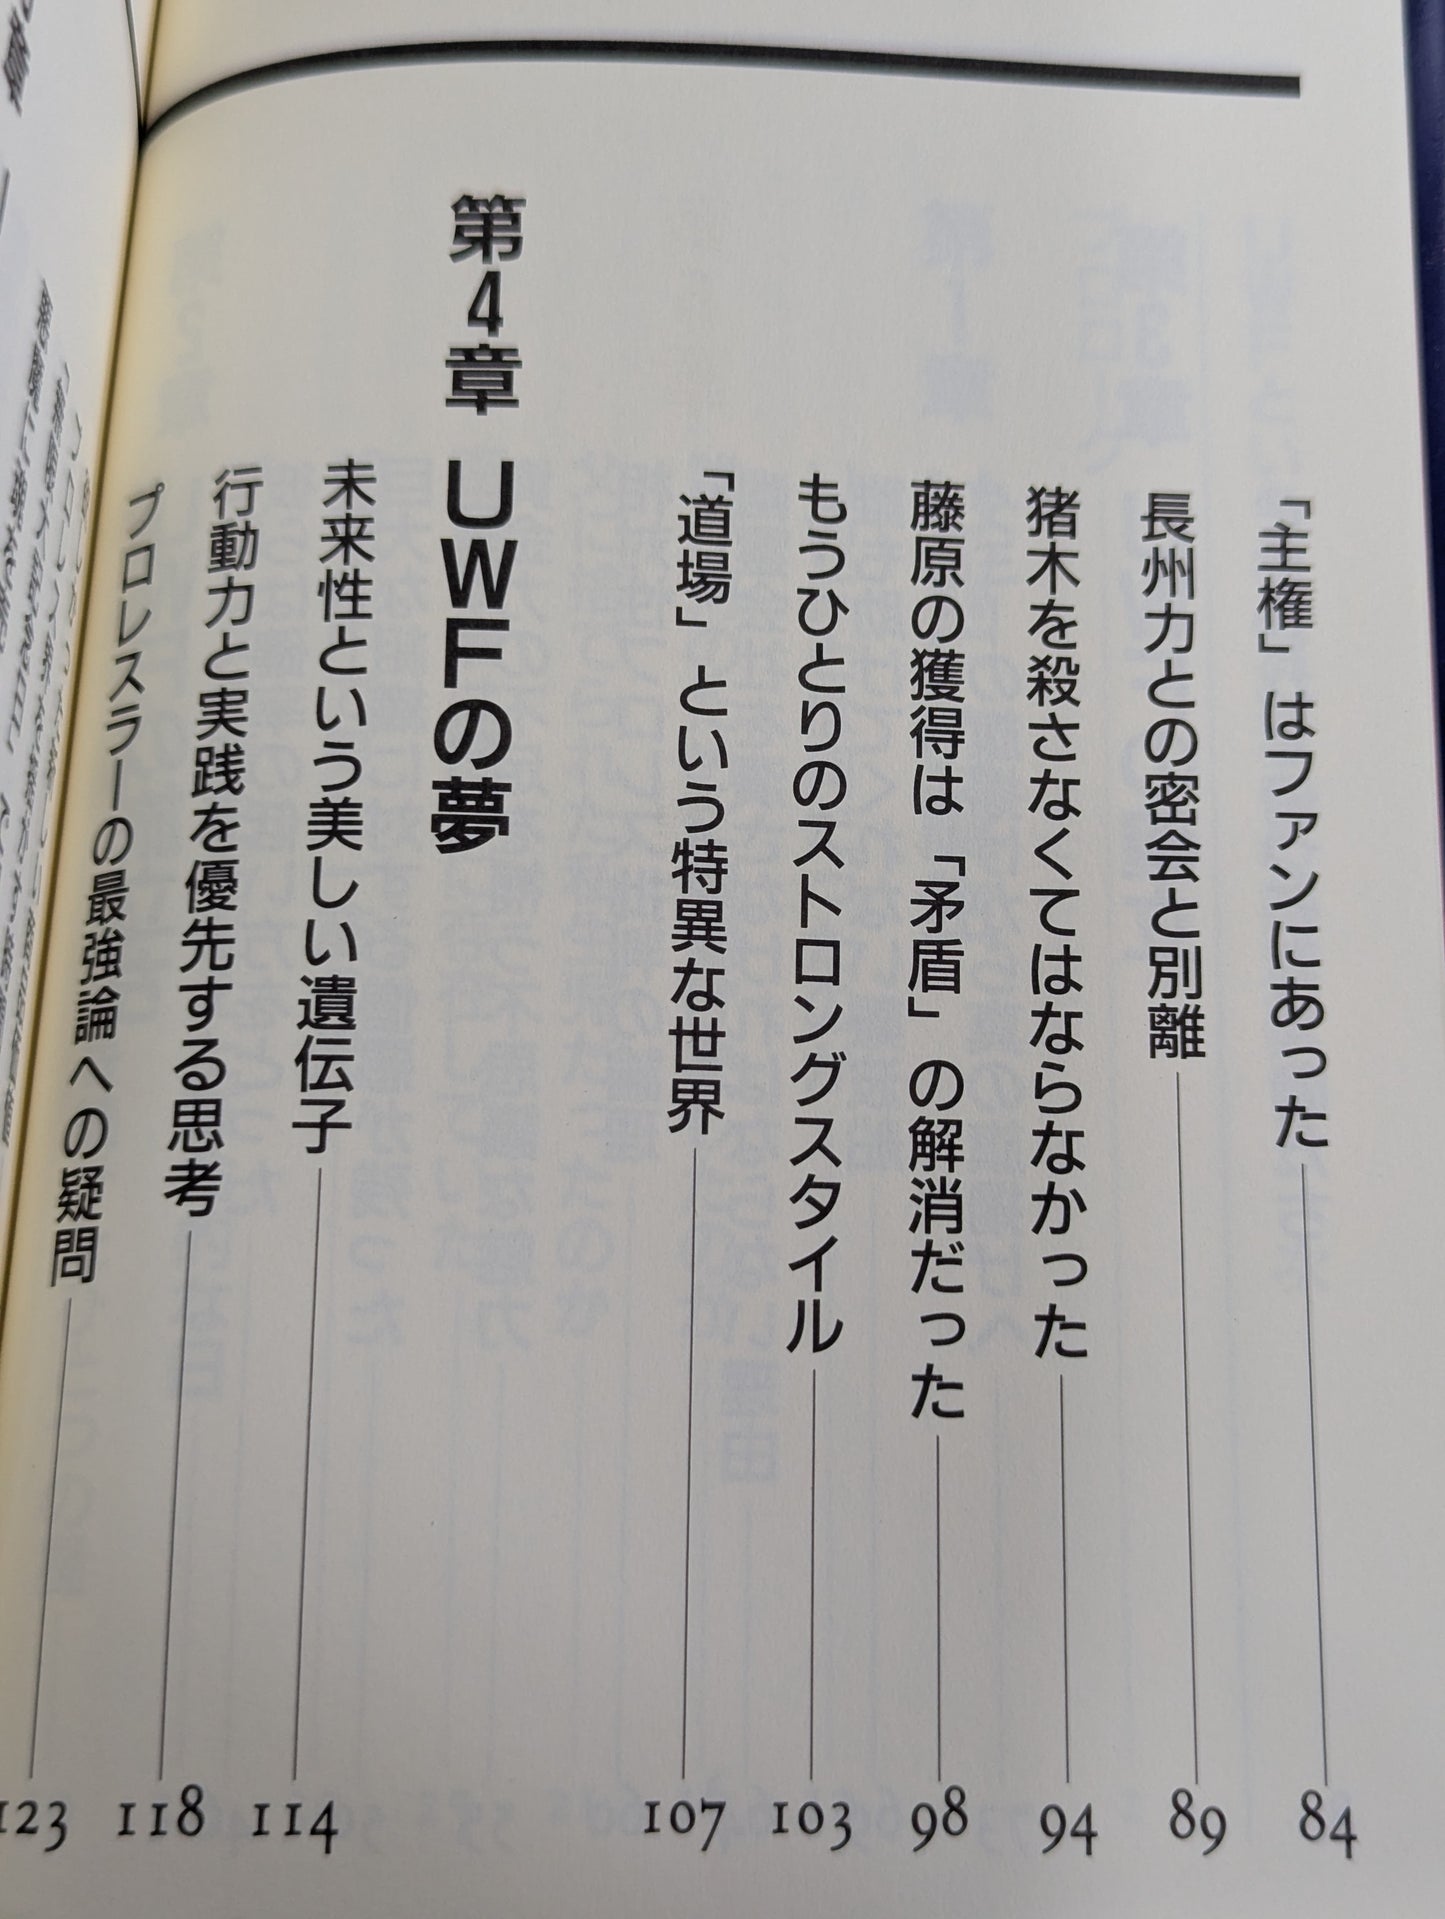 「主権」はファンにあった 84
長州力との密会と別離 89
猪木を殺さなくてはならなかった 94
藤原の獲得は「矛盾」の解消だった 98
もうひとりのストロングスタイル 103
「道場」という特異な世界 107
第4章 UWFの夢
未来性という美しい遺伝子 114
行動力と実践を優先する思考 118
プロレスラーの最強論への疑問 123